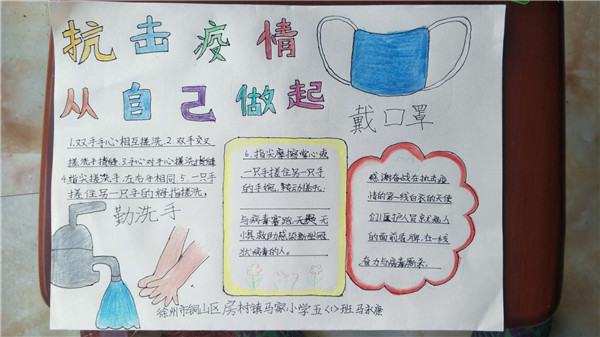 抗击疫情
从自己做起
戴口罩
1.双手手心相互搓洗.2.双手交叉
搓洗手指缝.3.手心对手心搓洗指缝
4.指尖搓洗手心,左右手相同.5.一只手
搓住另一只手的拇指搓洗,
勤洗手
6.指尖摩擦掌心或
一只手搓住另一只手
的手腕,转动搓洗
与病毒赛跑,无畏无
惧救助感染新型冠
状病毒的人。
感谢奋战在抗击疫
情的第一线白衣的天使
们!医护人员
的面前,在一线
奋力与病毒厮杀。
徐州市铜山区房村镇马家小学五〈1〉班马